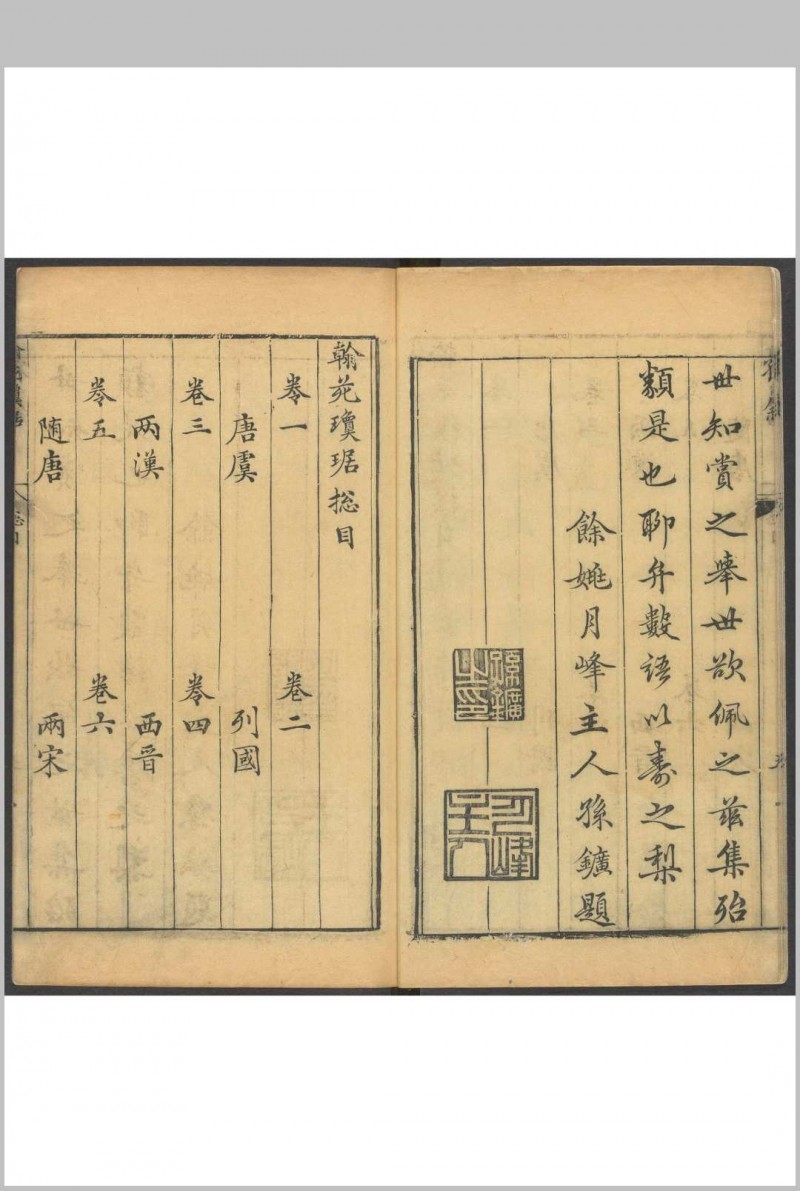 世知賞之舉世欲佩之茲集殆
類是也聊弁數語以壽之梨
餘姚月峰主人孫鑛題
孫鑛之印
月峰主人
翰苑瓊琚捴目
卷一 卷二
唐虞 列國
卷三 卷四
兩漢 西晉
卷五 卷六
随唐 兩宋